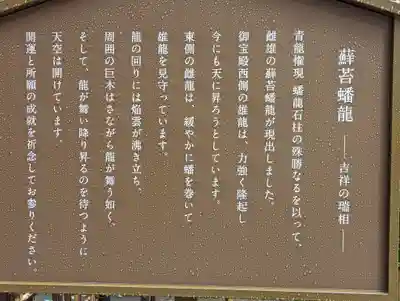 蘚苔蟠龍 ――吉祥の瑞相――
青龍権現 蟠龍石柱の殊勝なるを以って、
雌雄の蘚苔蟠龍が現出しました。
御宝殿西側の雄龍は、力強く隆起し
今にも天に昇ろうとしています。
東側の雌龍は、緩やかに蟠を巻いて
雄龍を見守っています。
龍の回りには焔雲が沸き立ち、
周囲の巨木はさながら龍が舞う如く、
そして、龍が舞い降り昇るのを待つように
天空は開けています。
開運と所願の成就を祈念してお参りください。